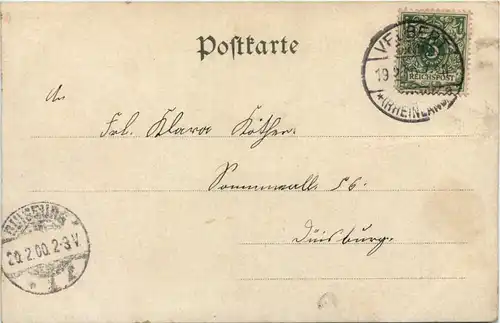 Postkarte
VELBERT
19
*(RHEINLAND)
5
REICHSPOST
An
Frl. Klara Köther
Sonnenwall 56.
Duisburg.
DUISBURG
20.2.00.2-3V.
* 1 z